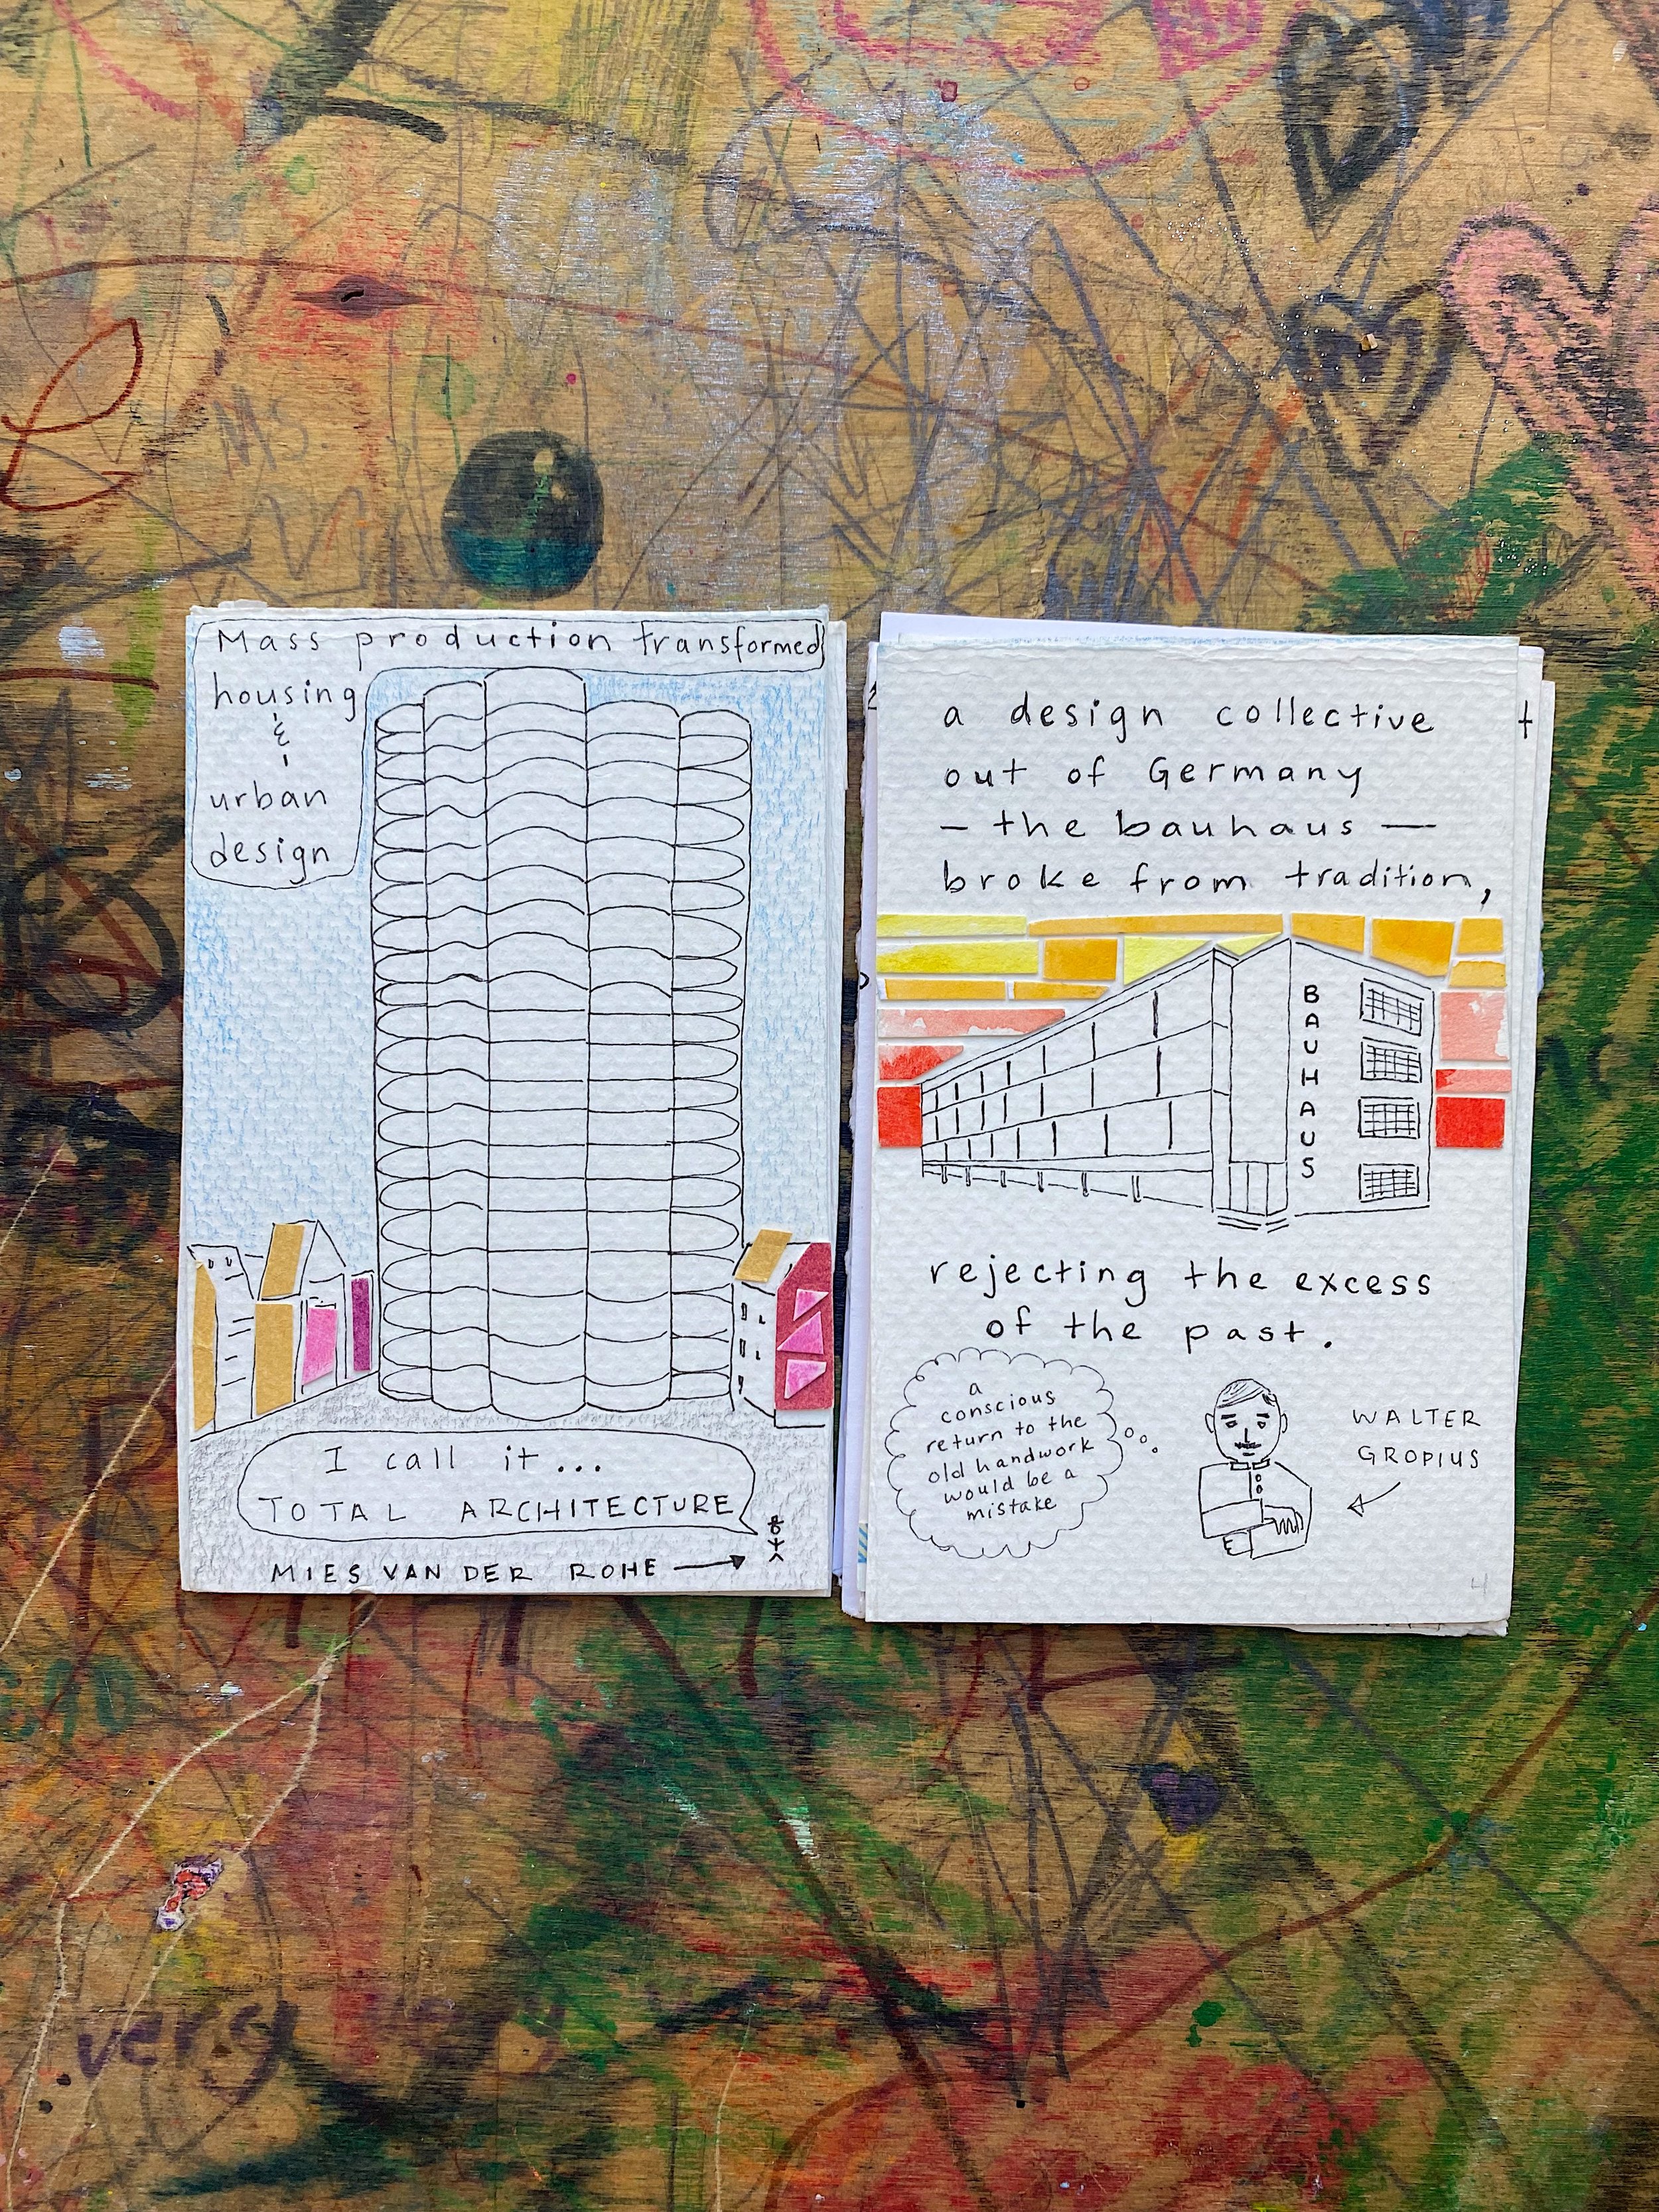 Mass production transformed
housing
&
urban
design
I call it...
TOTAL ARCHITECTURE
MIES VAN DER ROHE
a design collective
out of Germany
— the bauhaus —
broke from tradition,
BAUHAUS
rejecting the excess
of the past.
a
conscious
return to the
old handwork
would be a
mistake
WALTER
GROPIUS
4
MS
very